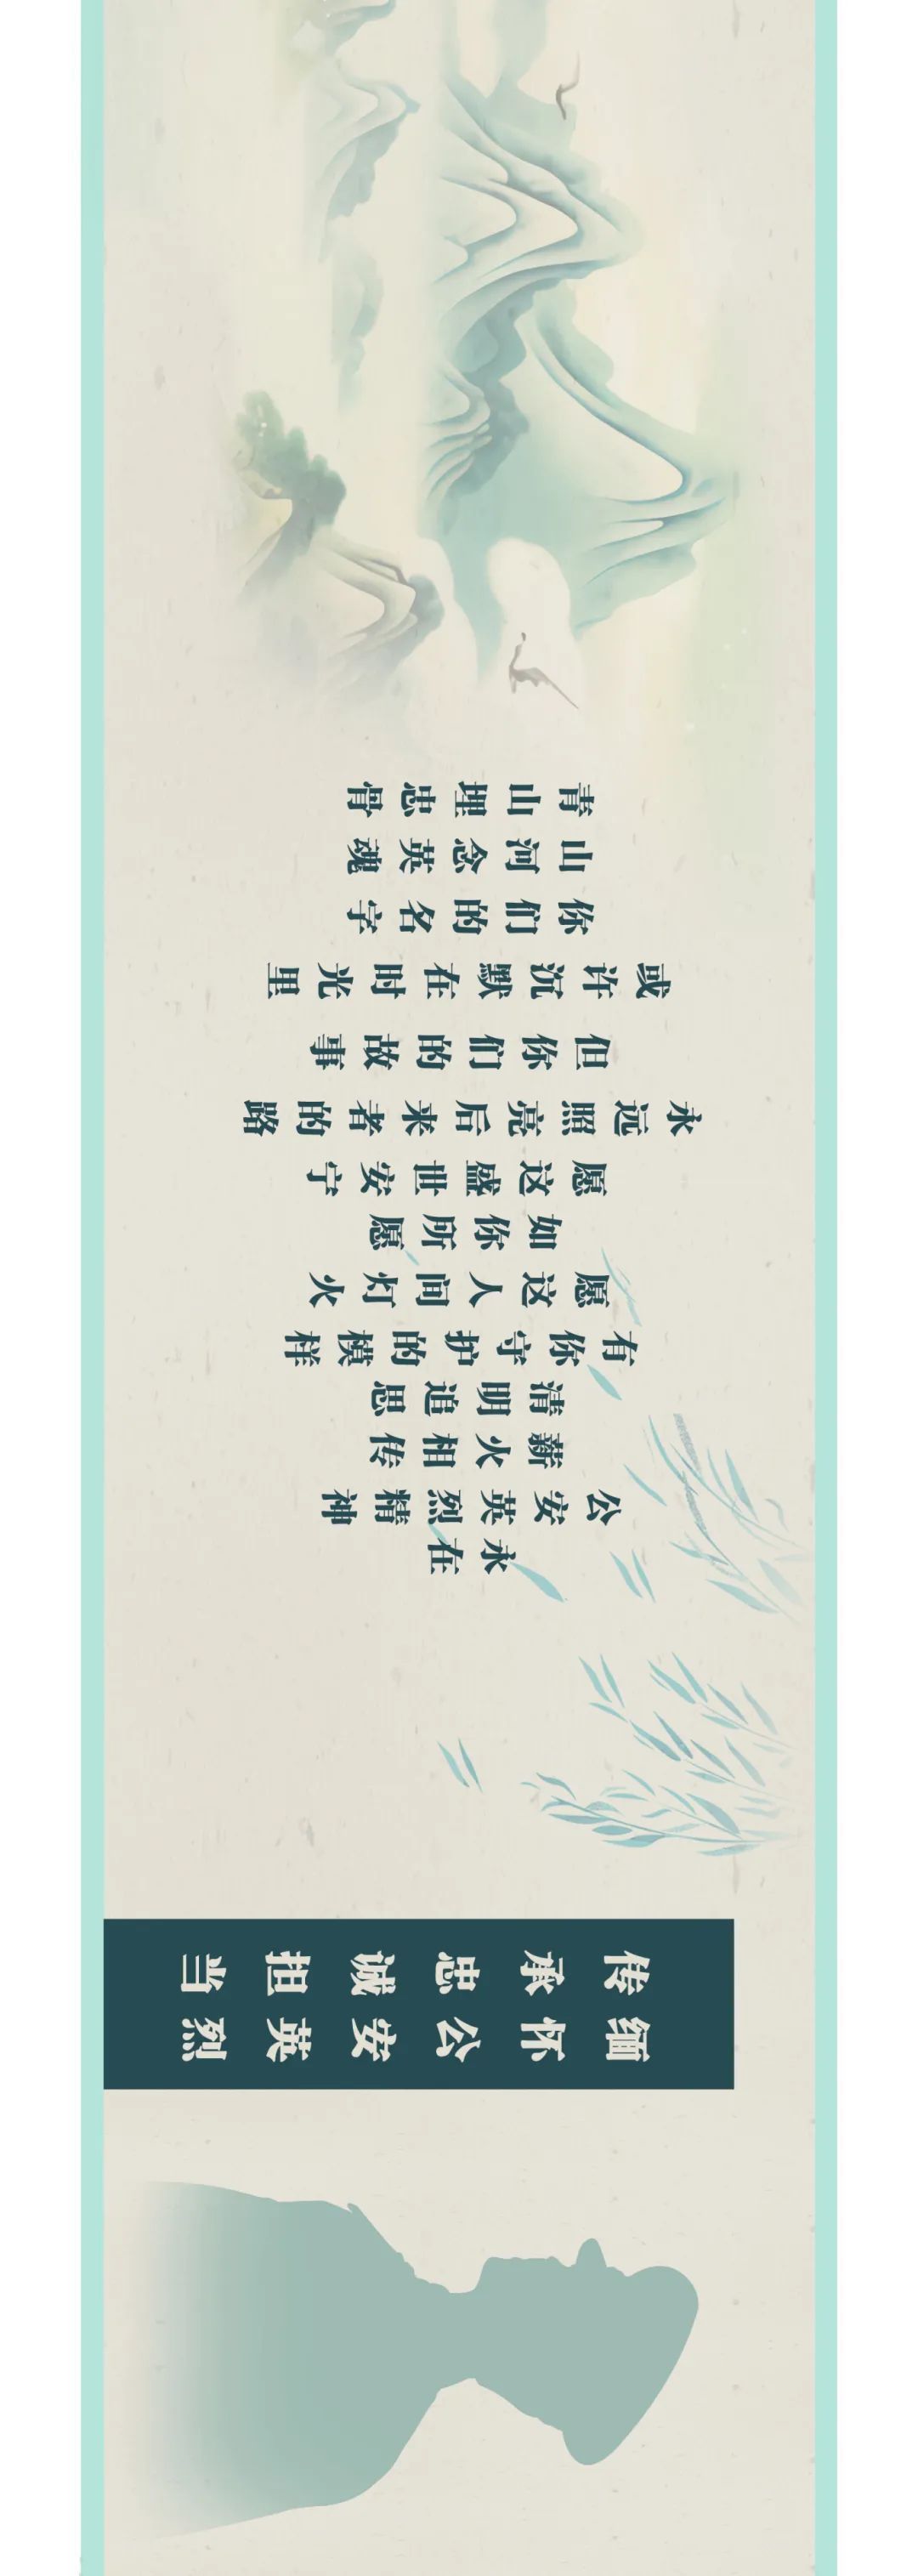 缅怀公安英烈
传承忠诚担当
青山埋忠骨
山河念英魂
你们的名字
或许沉默在时光里
但你们的故事
永远照亮后来者的路
愿这盛世安宁
如你所愿
愿这人间灯火
有你守护的模样
清明追思
薪火相传
公安英烈精神
永在